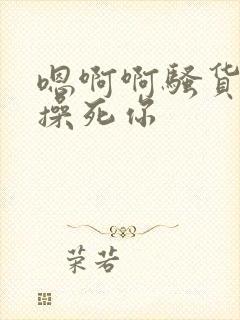 嗯啊啊骚货
操死你
荣若